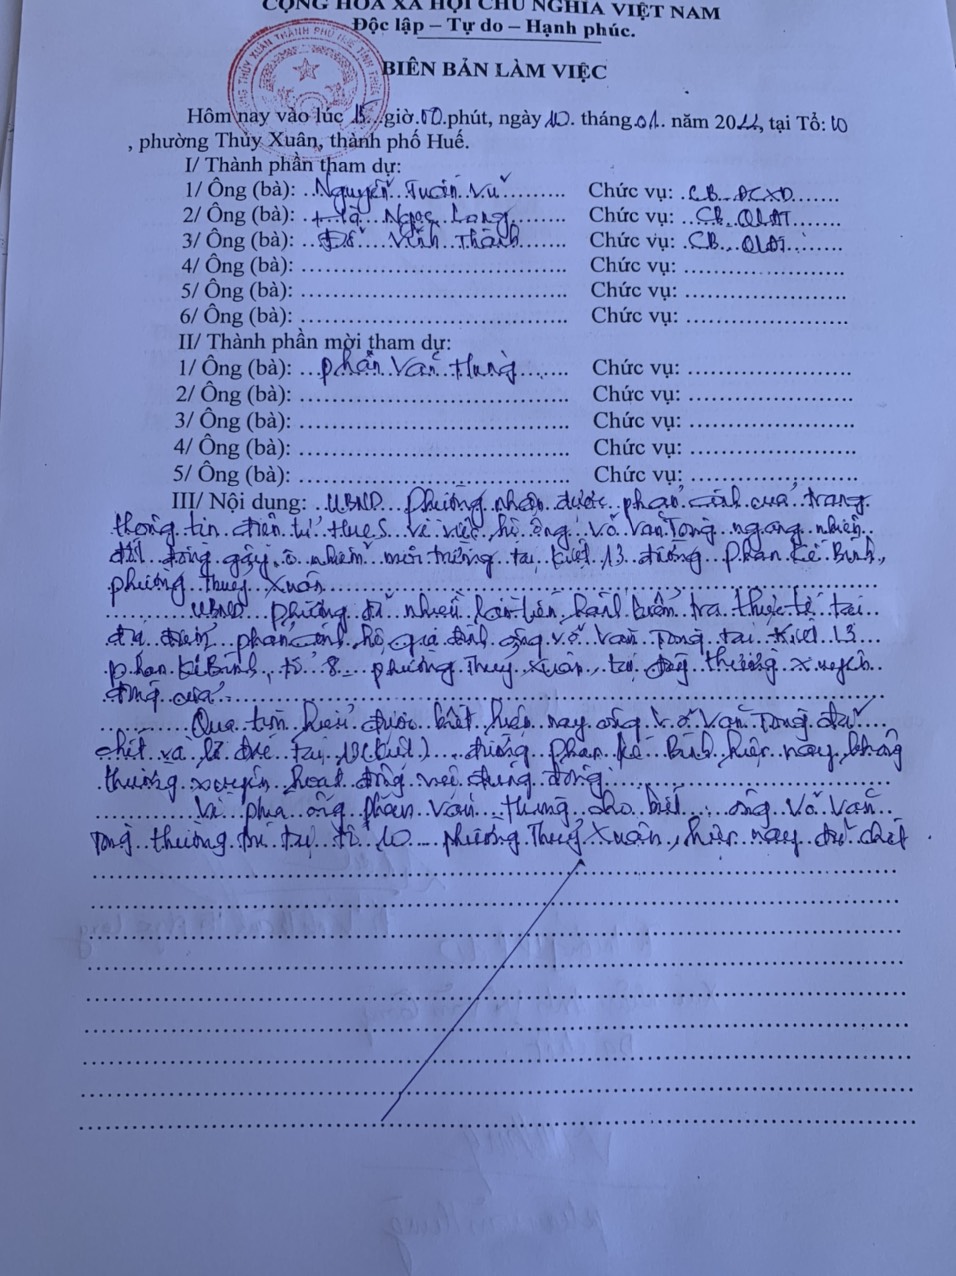 CỘNG HÒA XÃ HỘI CHỦ NGHĨA VIỆT NAM
Độc lập – Tự do – Hạnh phúc.
BIÊN BẢN LÀM VIỆC
Hôm nay vào lúc 15 giờ 00 phút, ngày 10 tháng 01 năm 2022, tại Tổ: 10
, phường Thủy Xuân, thành phố Huế.
I/ Thành phần tham dự:
1/ Ông (bà): Nguyễn Tuấn Vũ Chức vụ: CB ĐCXD
2/ Ông (bà): Ngọc Long Chức vụ: CB QLĐT
3/ Ông (bà): Vĩnh Thành Chức vụ: CB QLĐT
4/ Ông (bà): Chức vụ:
5/ Ông (bà): Chức vụ:
6/ Ông (bà): Chức vụ:
II/ Thành phần mời tham dự:
1/ Ông (bà): Phan Văn Hùng Chức vụ:
2/ Ông (bà): Chức vụ:
3/ Ông (bà): Chức vụ:
4/ Ông (bà): Chức vụ:
5/ Ông (bà): Chức vụ:
III/ Nội dung: UBND Phường nhận được phản ánh của trang
thông tin điện tử HueS về việc hộ ông Võ Văn Tòng ngang nhiên
đốt đồng gây ô nhiễm môi trường tại Kiệt 13 đường Phan Kế Bính,
phường Thuỷ Xuân
UBND phường đã nhiều lần tiến hành kiểm tra thực tế tại
địa điểm phản ánh, hộ gia đình ông Võ Văn Tòng tại Kiệt 13
Phan Kế Bính, tổ 8 phường Thuỷ Xuân, tại đây thường xuyên
đóng cửa.
Qua tìm hiểu được biết hiện nay ông Võ Văn Tòng đã
chết và lò đúc tại 13 (kiệt) đường Phan Kế Bính hiện nay không
thường xuyên hoạt động với đúng đồng
Về phía ông Phan Văn Hùng cho biết ông Võ Văn
Tòng thường trú tại tổ 10 phường Thuỷ Xuân, hiện nay đã chết.